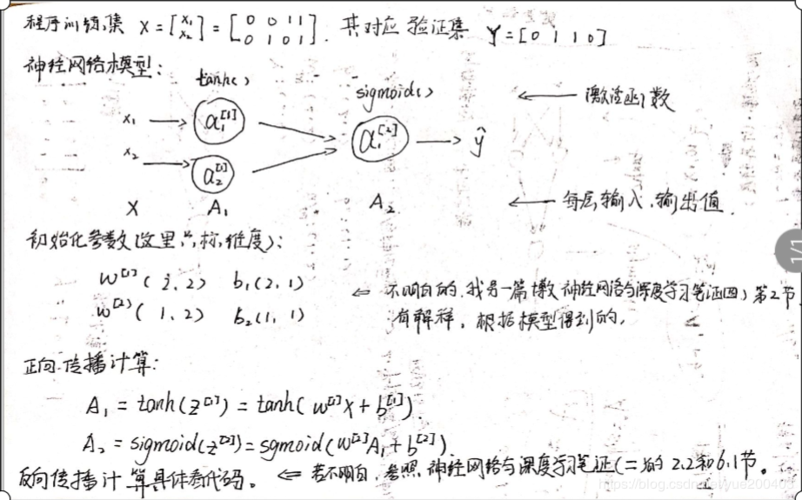 程序训练集 X=[x₁ x₂]=[0 0 1 1 0 1 0 1]. 其对应验证集 Y=[0 1 1 0]
神经网络模型:
tanh() sigmoid() ← 激活函数
x₁ → a₁^[1]
x₂ → a₂^[1]
a₁^[2] → ŷ
X A₁ A₂ ← 每层输入、输出值.
初始化参数(这里只标,维度):
w^[1](2,2) b₁(2,1)
w^[2](1,2) b₂(1,1)
← 不明白的,我另一篇博文 神经网络与深度学习笔记(四)第2节
有解释,根据模型得到的,
正向传播计算:
A₁=tanh(z^[1])=tanh(w^[1]X+b^[1]).
A₂=sigmoid(z^[2])=sgmoid(w^[2]A₁+b^[2]).
反向传播计算具体看代码。 ⇐ 若不明白,参照,神经网络与深度学习笔记(二)的2.2和6.1节。
1/1